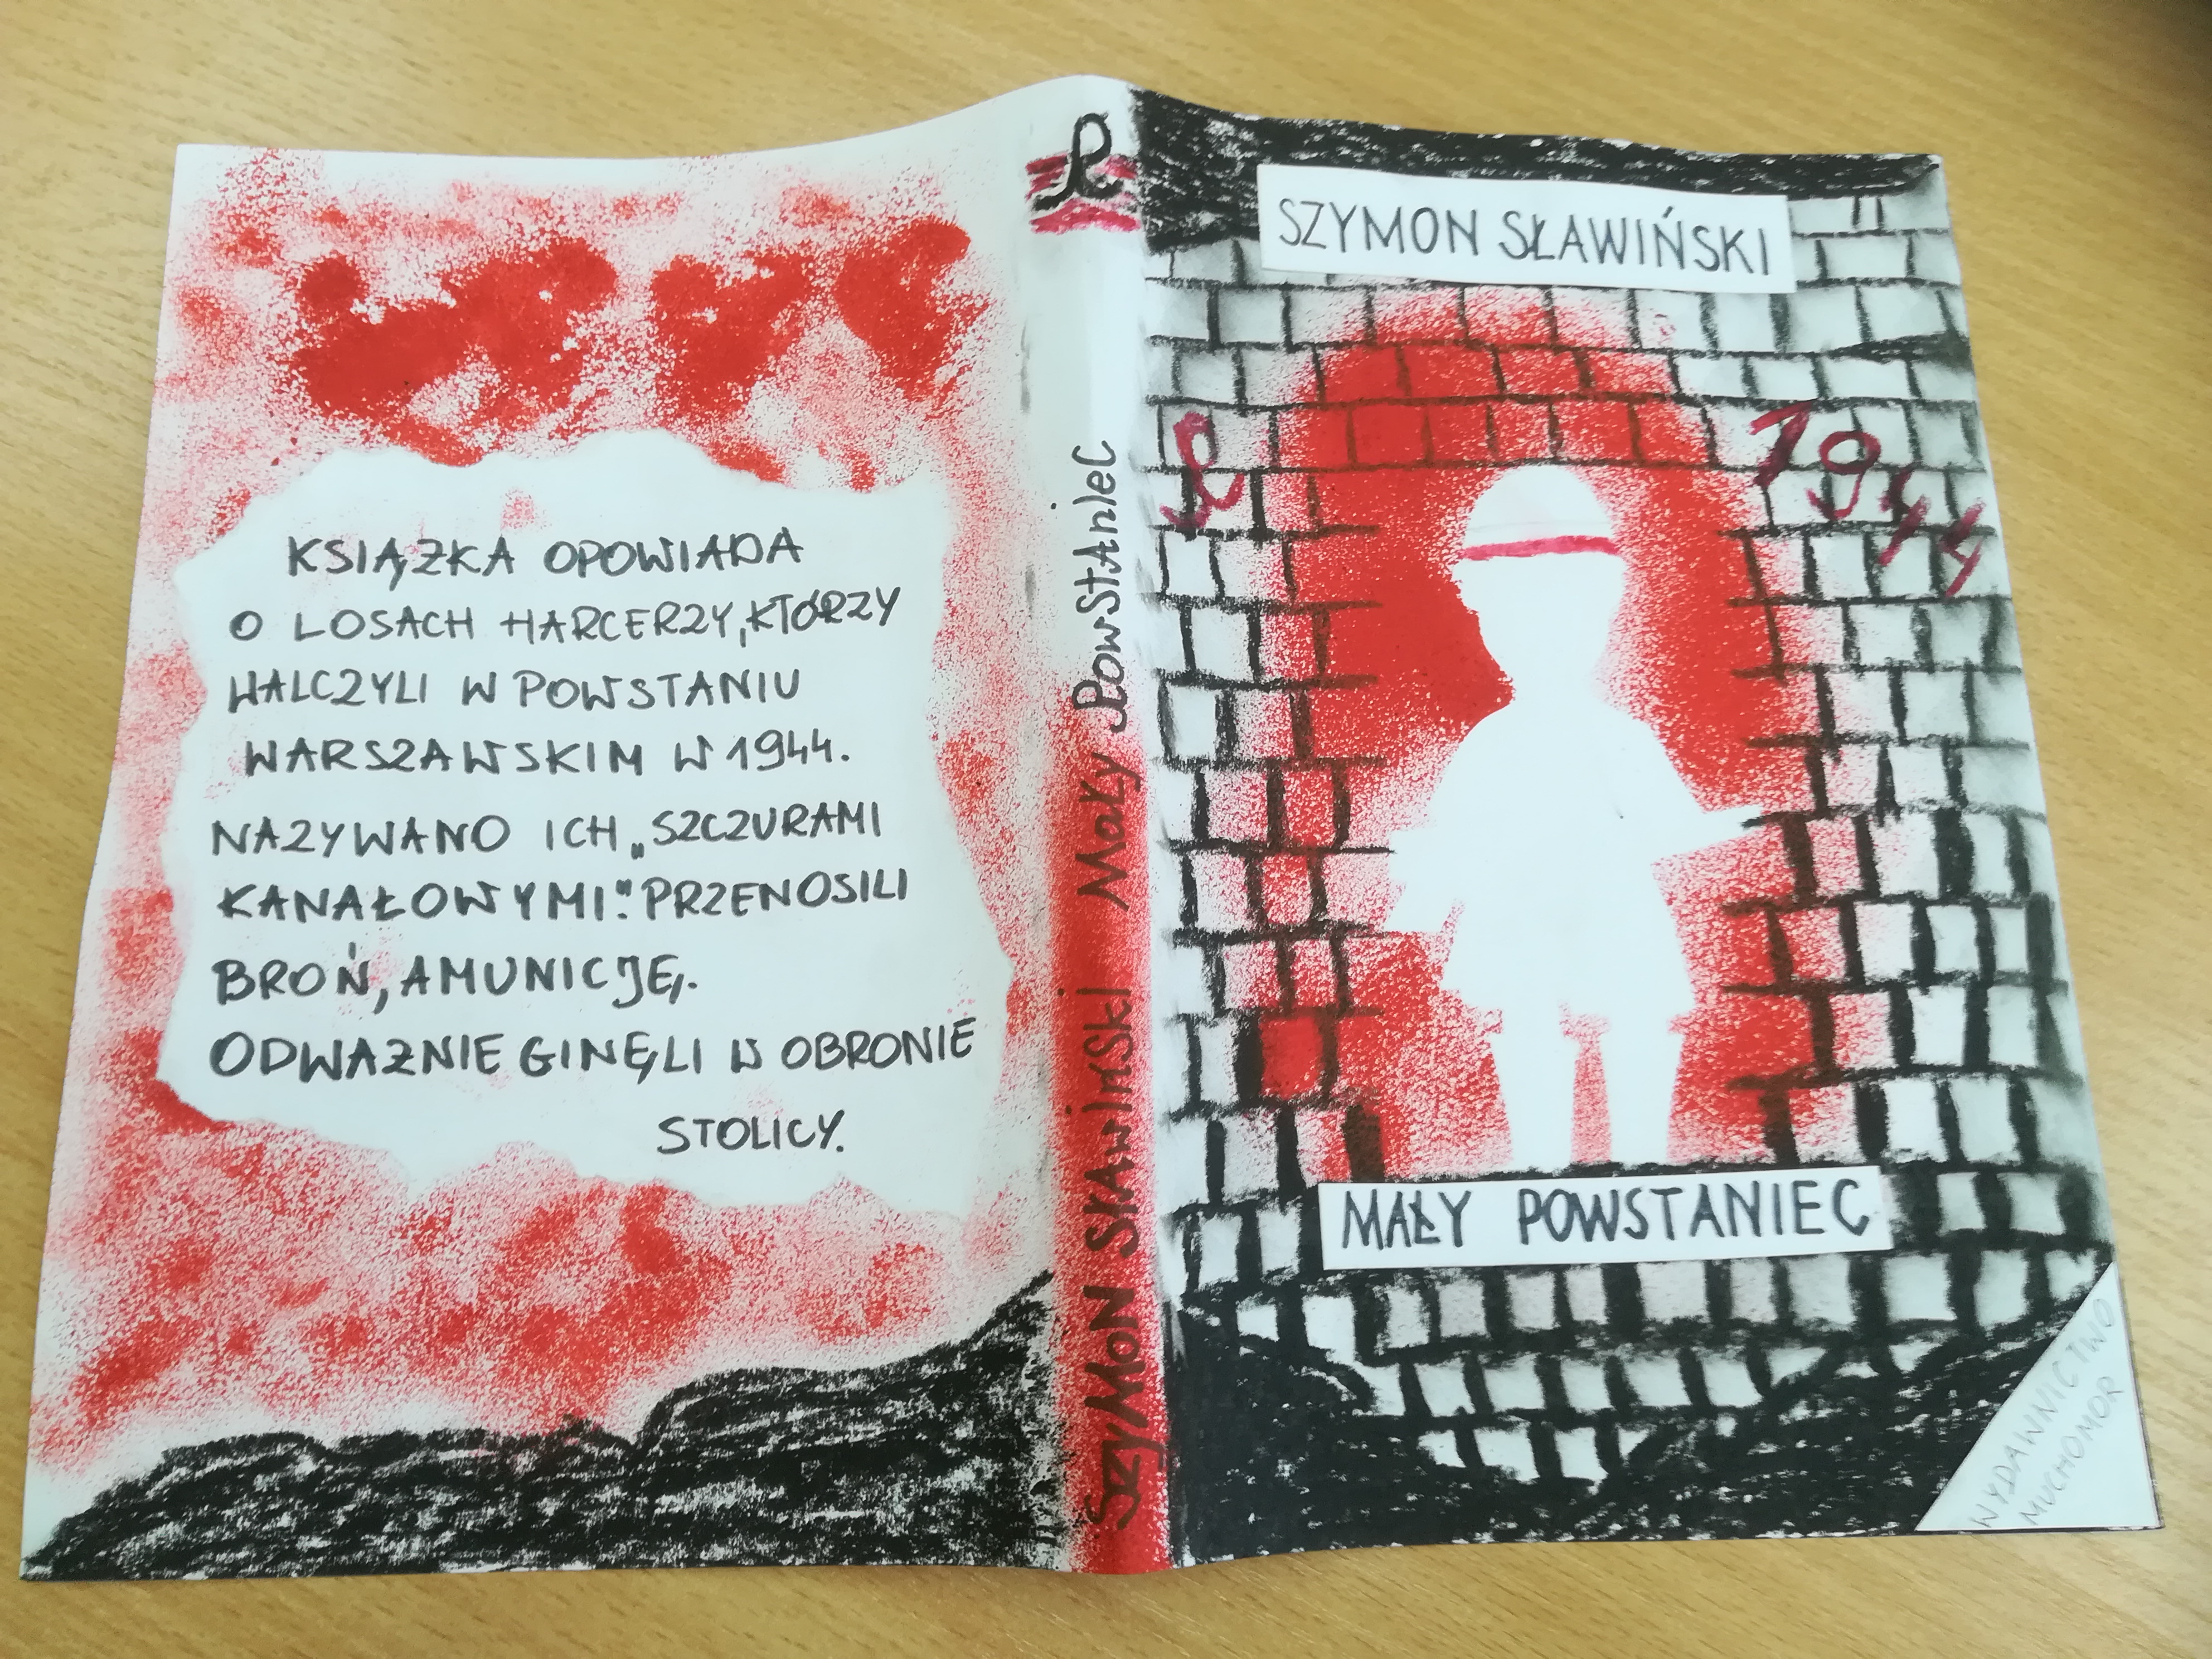 KSIĄŻKA OPOWIADA
O LOSACH HARCERZY, KTÓRZY
WALCZYLI W POWSTANIU
WARSZAWSKIM W 1944.
NAZYWANO ICH „SZCZURAMI
KANAŁOWYMI". PRZENOSILI
BROŃ, AMUNICJĘ.
ODWAŻNIE GINĘLI W OBRONIE
STOLICY.
SzyMON SŁAwiński Mały PowStAnieC
SZYMON SŁAWIŃSKI
1944
MAŁY POWSTANIEC
WYDAWNICTWO
MUCHOMOR